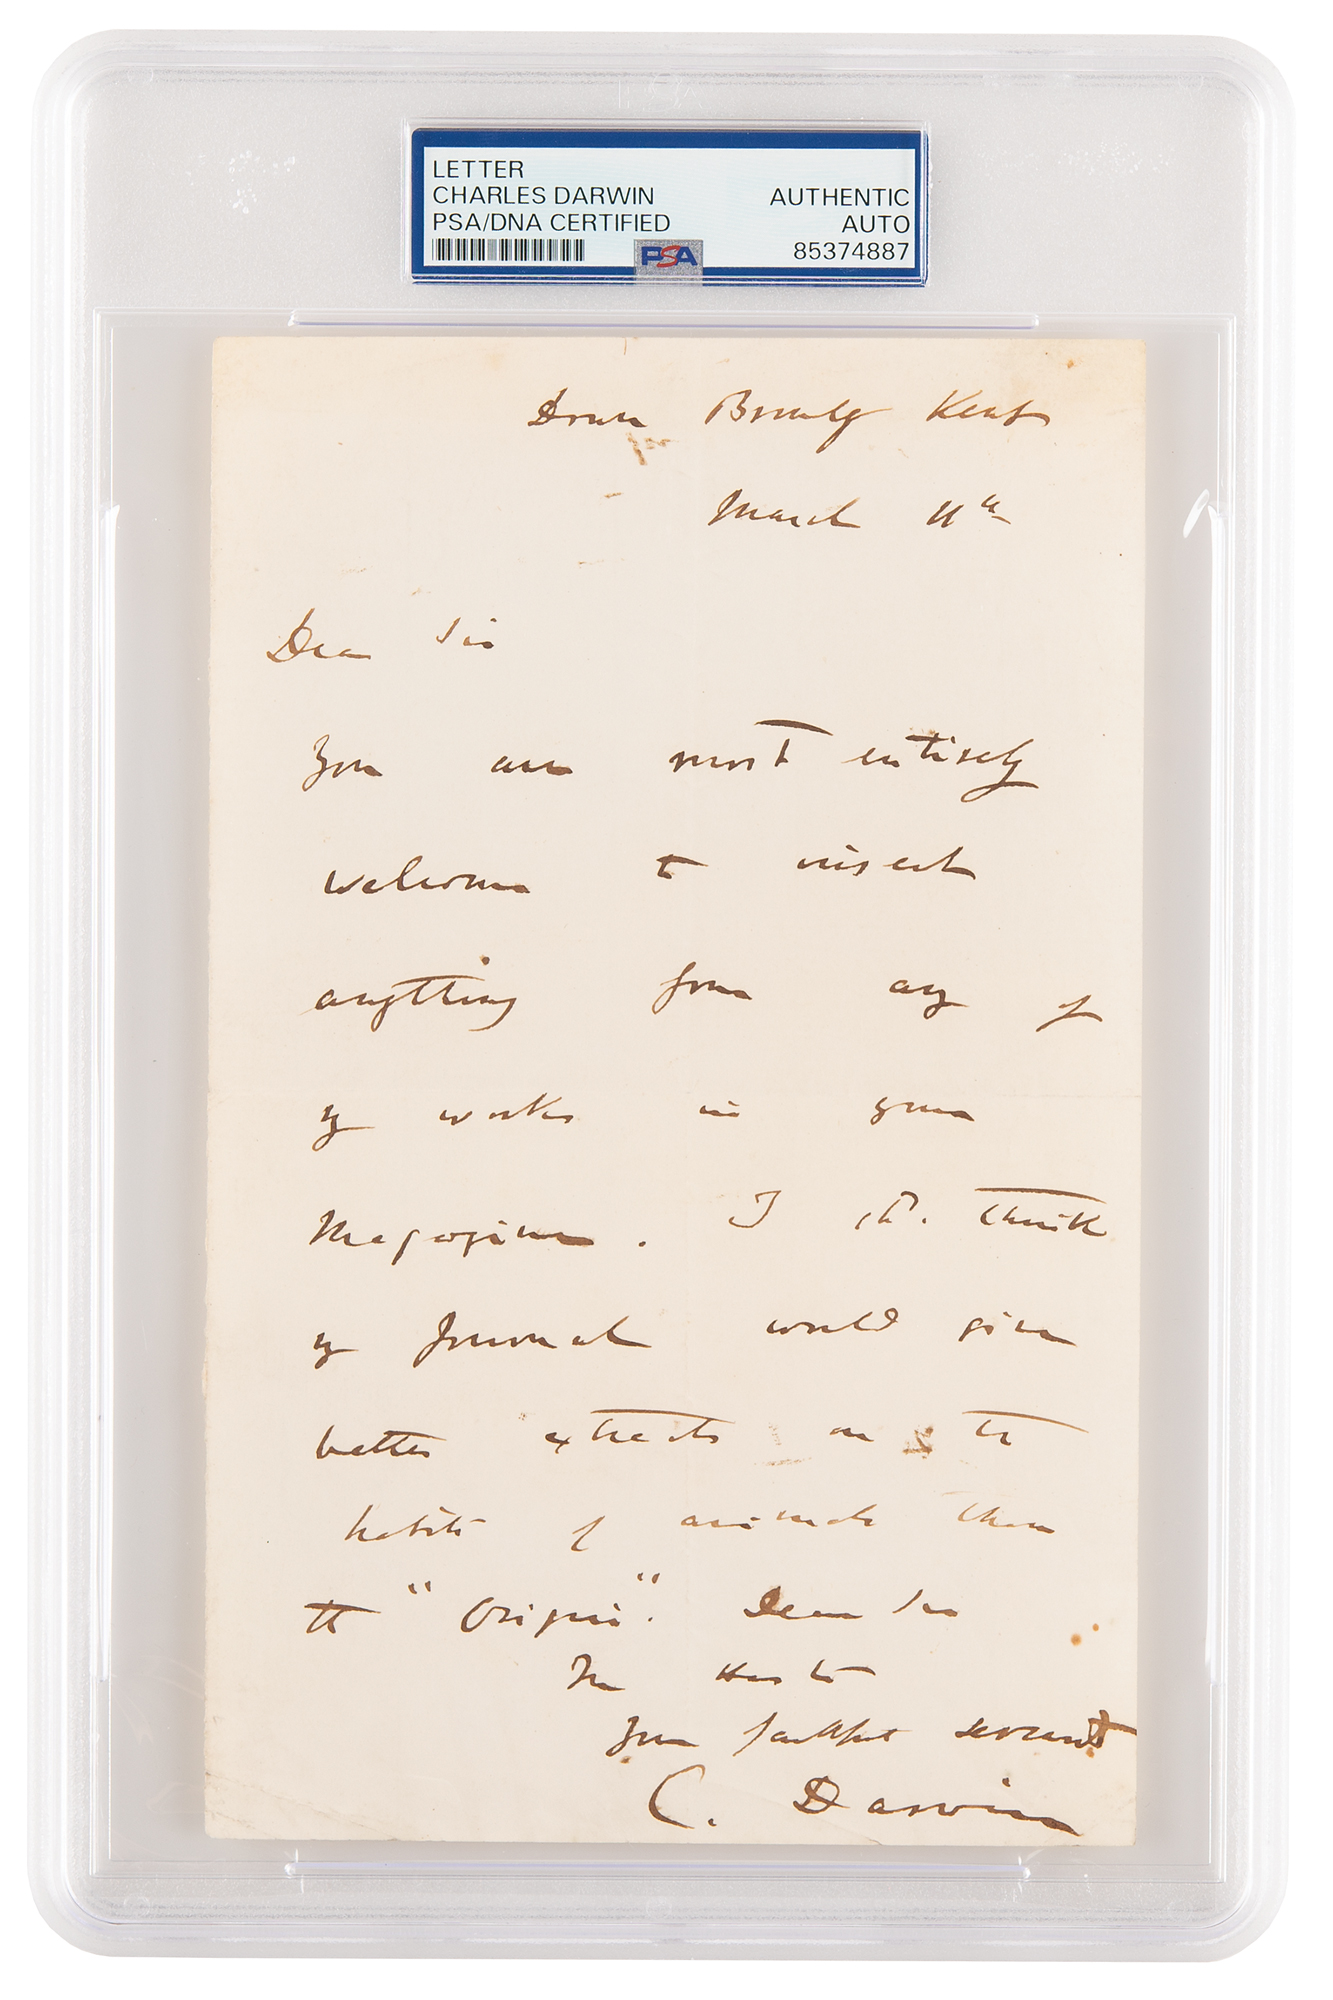 LETTER
CHARLES DARWIN
PSA/DNA CERTIFIED
AUTHENTIC
AUTO
85374887
PSA
Down Bromley Kent
March 11th
Dear Sir
You are most entirely
welcome to insert
anything from any of
my works in your
Magazine. I shd. think
my Journal would give
better extracts on the
habits of animals than
the "Origin". Dear Sir
Yours faithful servant
C. Darwin